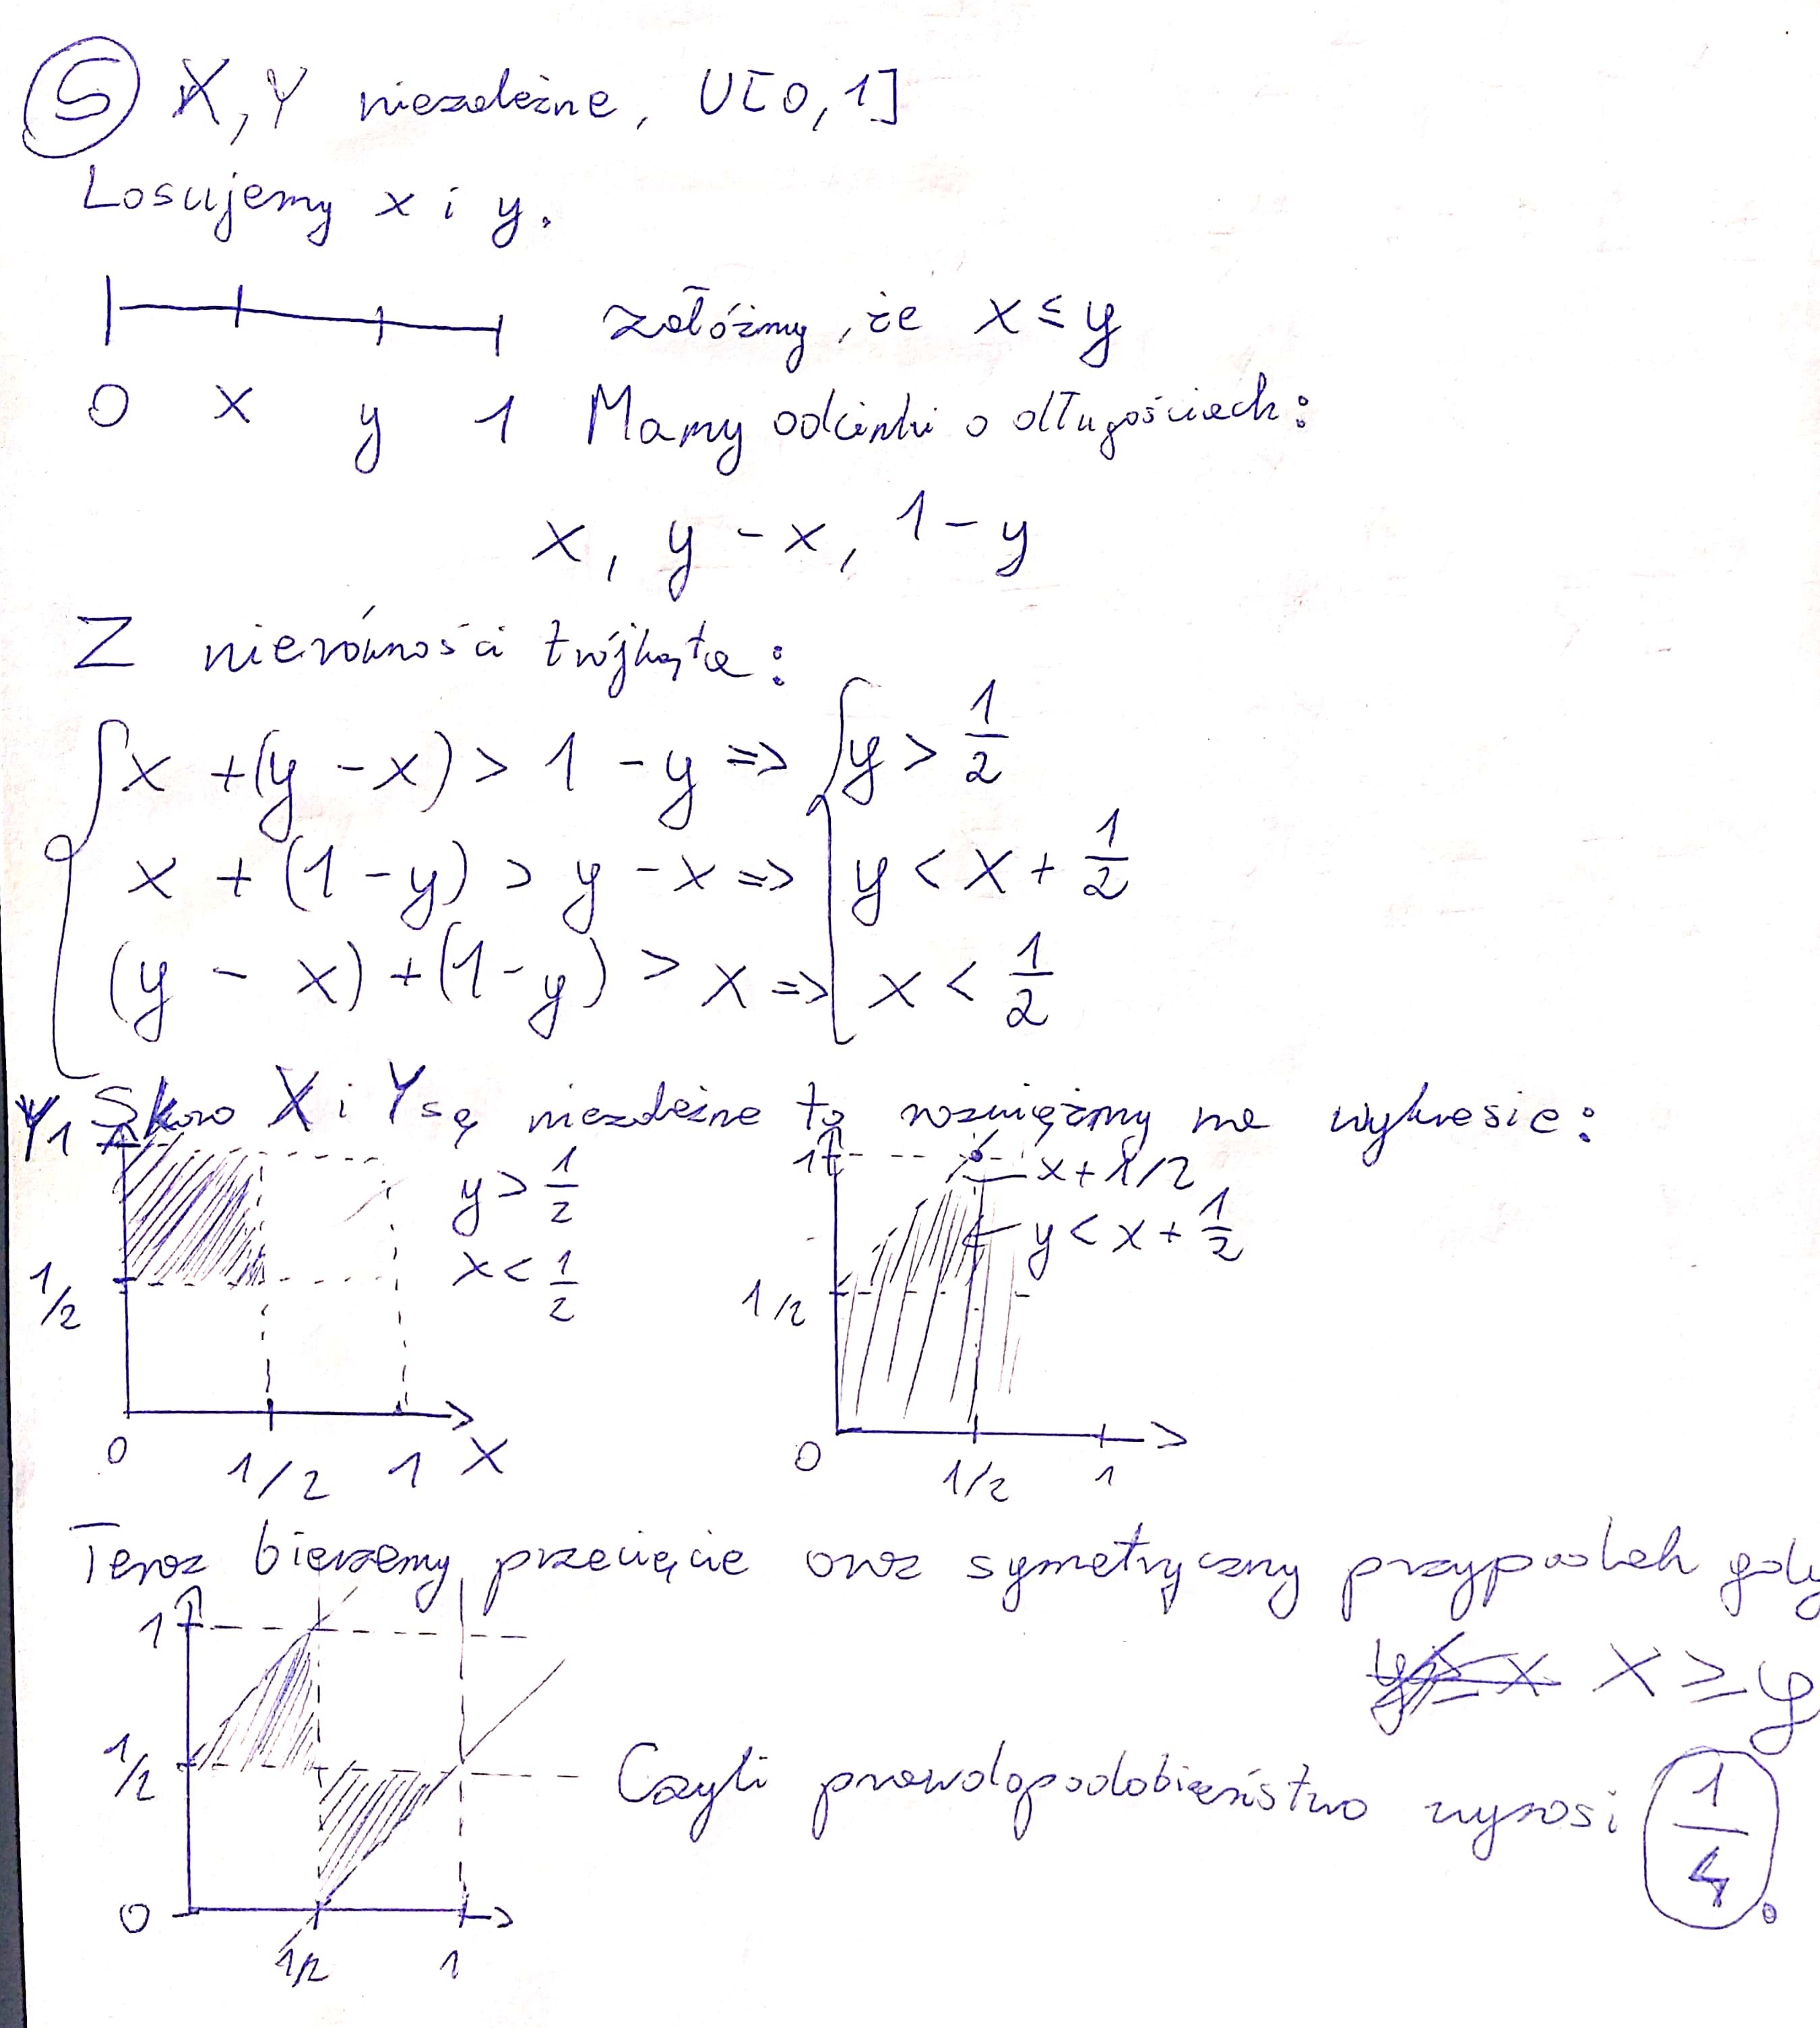 5 X, Y niezależne, U[0,1]
Losujemy x i y.
załóżmy, że x ≤ y
0 x y 1 Mamy odcinki o długościach:
x, y - x, 1 - y
Z nierówności trójkąta:
x + (y - x) > 1 - y => y > 1/2
x + (1 - y) > y - x => y < x + 1/2
(y - x) + (1 - y) > x => x < 1/2
Skoro X i Y są niezależne to rozwiążmy na wykresie:
Y 1
y > 1/2
x < 1/2
1/2
0 1/2 1 X
1
x + 1/2
y < x + 1/2
1/2
0 1/2 1
Teraz bierzemy przecięcie oraz symetryczny przypadek gdy
x ≥ y
1
1/2
0
1/2 1
Czyli prawdopodobieństwo wynosi 1/4.